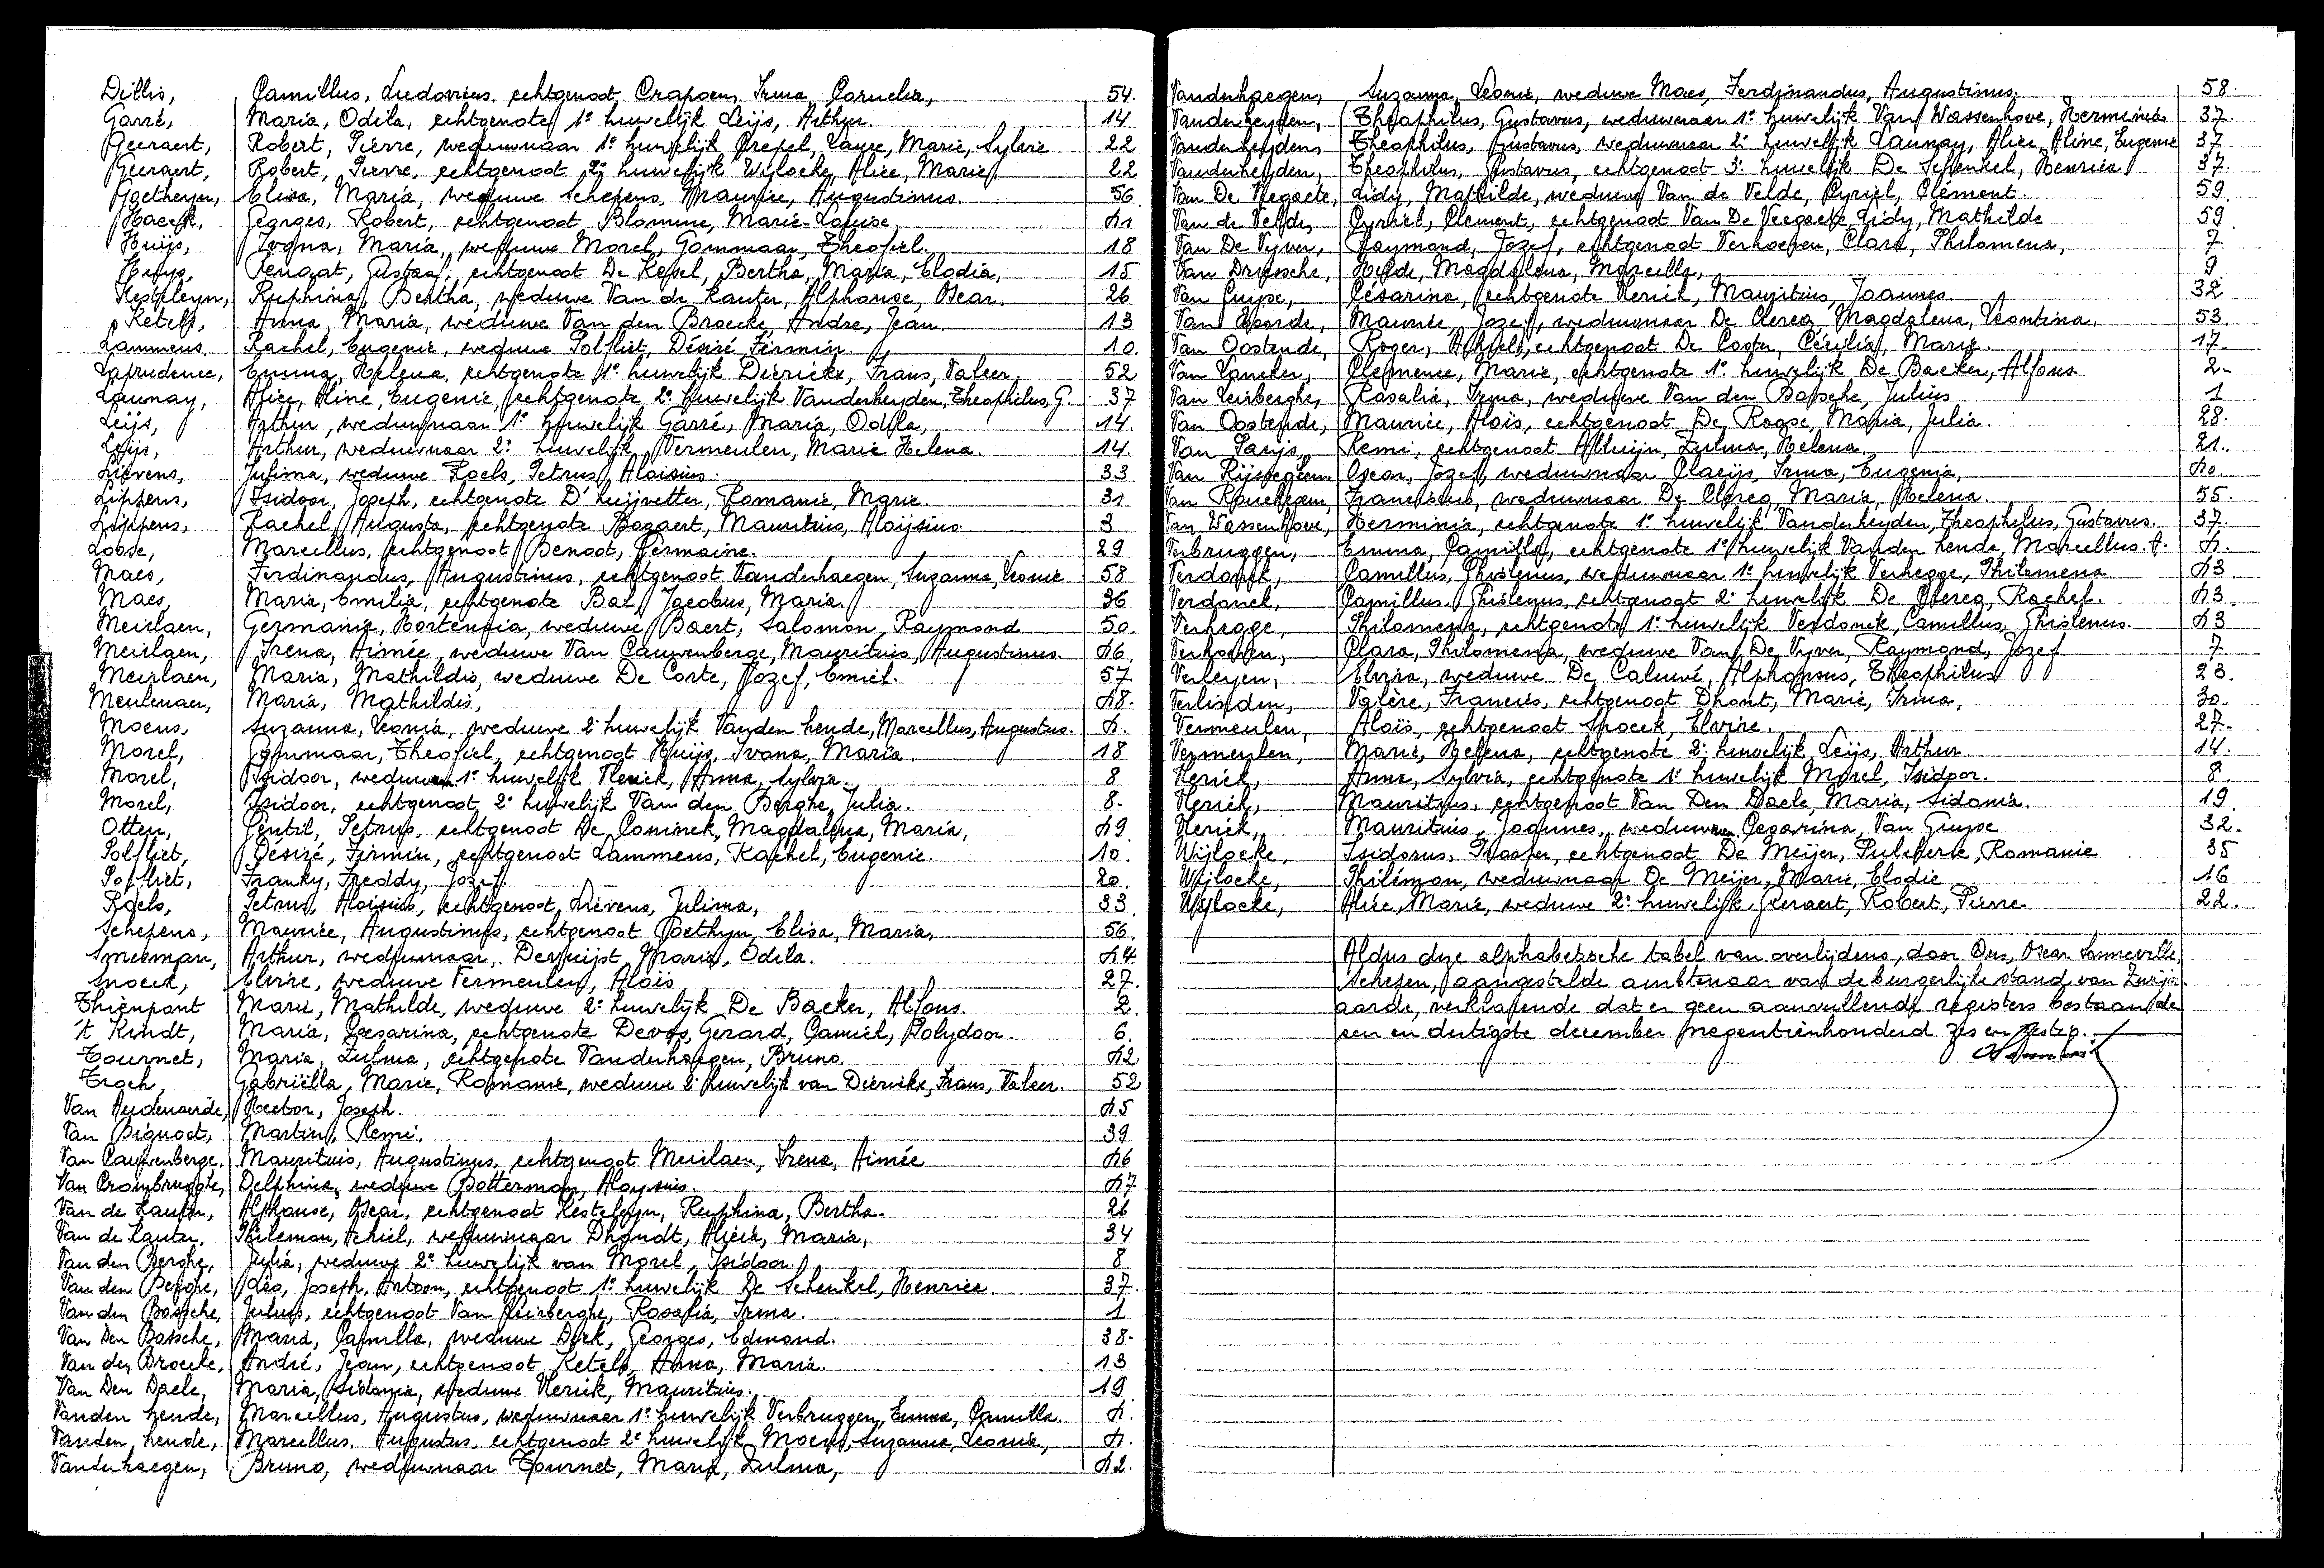 Dillis, Camillus, Ludovicus, echtgenoot Crapoen, Irma, Cornelia, 54.
Garré, Maria, Odila, echtgenote 1e huwelijk Leijs, Arthur. 14
Geeraert, Robert, Pierre, weduwnaar 1e huwelijk Laure, Marie, Sylvie 22
Geeraert, Robert, Pierre, echtgenoot 2e huwelijk Wijlocke, Alice, Marie 22
Goethyn, Elisa, Maria, weduwe Schepens, Maurice, Augustinus. 56
Haeck, Georges, Robert, echtgenoot Blomme, Marie-Louise, 41
Huijs, Ivona, Maria, weduwe Morel, Gommaar, Theofiel. 18
Huijs, Renaat, Gustaaf, echtgenoot De Kesel, Bertha, Maria, Elodia, 15
Kesteleyn, Ruphina, Bertha, weduwe Van de Kauter, Alphonse, Oscar. 26
Ketels, Anna, Maria, weduwe Van den Broecke, André, Jean 13
Lammens, Rachel, Eugenie, weduwe Polfliet, Désiré Firmin. 10.
Laprudence, Emma, Helena, echtgenote 1e huwelijk Dierickx, Frans, Valeer. 52
Launay, Alice, Aline, Eugenie, echtgenote 2e huwelijk Vanderheyden, Theophilus, G. 37
Leijs, Arthur, weduwnaar 1e huwelijk Garré, Maria, Odila, 14.
Leijs, Arthur, weduwnaar 2e huwelijk Vermeulen, Marie Helena. 14.
Lievens, Julima, weduwe Roels, Petrus, Aloisius. 33
Lippens, Isidoor, Joseph, echtgenote D'huijvetter, Romanie, Marie. 31
Lippens, Rachel, Augusta, echtgenote Bogaert, Mauritius, Aloijsius 3
Loose, Marcellus, echtgenoot Benoot, Germaine. 29
Maes, Ferdinandus, Augustinus, echtgenoot Vanderhaegen, Suzanna, Leonie 58
Maes, Maria, Emilia, echtgenote Bal, Jacobus, Maria. 36
Meirlaen, Germanie, Hortensia, weduwe Baert, Salomon, Raymond 50.
Meirlaen, Irena, Aimée, weduwe Van Cauwenberge, Mauritius, Augustinus. 46.
Meirlaen, Maria, Mathildis, weduwe De Corte, Jozef, Emiel. 57
Meulenaer, Maria, Mathildis, 48.
Moens, Suzanna, Leonia, weduwe 2e huwelijk Vanden hende, Marcellus, Augustus. 4.
Morel, Gommaar, Theofiel, echtgenoot Huijs, Ivona, Maria. 18
Morel, Isidoor, weduwnaar 1e huwelijk Anna, Sylvia. 8
Morel, Isidoor, echtgenoot 2e huwelijk Van den Berghe, Julia. 8.
Otten, Gentil, Petrus, echtgenoot De Coninck, Magdalena, Maria, 49
Polfliet, Désiré, Firmin, echtgenoot Lammens, Rachel, Eugenie. 10.
Polfliet, Franky, Freddy, Jozef. 20.
Roels, Petrus, Aloisius, echtgenoot Lievens, Julima, 33
Schepens, Maurice, Augustinus, echtgenoot Goethyn, Elisa, Maria, 56.
Smesman, Arthur, weduwnaar, Dervuijst, Maria, Odila. 44.
Snoeck, Elvire, weduwe Vermeulen, Aloïs 27.
Thienpont Marie, Mathilde, weduwe 2e huwelijk De Backer, Alfons. 2.
't Kindt, Maria, Cesarina, echtgenote Devos, Gerard, Camiel, Polydoor. 6.
Tournet, Maria, Zulma, echtgenote Vanderhaegen, Bruno. 42
Troch, Gabriëlla, Marie, Romanie, weduwe 2e huwelijk van Dierickx, Frans, Valeer. 52
Van Audenaerde, Hector, Joseph. 45
Van Bignoot, Martin, Remi, 39
Van Cauwenberge, Mauritius, Augustinus, echtgenoot Meirlaen, Irena, Aimée 46
Van Crombrugghe, Delphina, weduwe Botterman, Aloysius. 47
Van de Kauter, Alphonse, Oscar, echtgenoot Kesteleyn, Ruphina, Bertha. 26
Van de Kauter, Philemon, Achiel, weduwnaar Dhondt, Alicia, Maria, 34
Van den Berghe, Julia, weduwe 2e huwelijk van Morel, Isidoor. 8
Van den Berghe, Léo, Joseph, Antoon, echtgenoot 1e huwelijk De Schenkel, Henrica 37.
Van den Bossche, Julius, echtgenoot Van Leirberghe, Rosalia, Irma. 1
Van Den Bossche, Maria, Camilla, weduwe Dick, Georges, Edmond. 38.
Van den Broecke, André, Jean, echtgenoot Ketels, Anna, Maria. 13
Van Den Daele, Maria, Sidonia, weduwe Mauritius. 19
Vanden hende, Marcellus, Augustus, weduwnaar 1e huwelijk Verbruggen, Emma, Camilla. 4.
Vanden hende, Marcellus, Augustus, echtgenoot 2e huwelijk Moens, Suzanna, Leonia, 4.
Vanderhaegen, Bruno, weduwnaar Tournet, Maria, Zulma, 42.
Vanderhaegen, Suzanna, Leonie, weduwe Maes, Ferdinandus, Augustinus. 58.
Vanderheyden, Theophilus, Gustavus, weduwnaar 1e huwelijk Van Wassenhove, Herminia 37.
Vanderheyden, Theophilus, Gustavus, weduwnaar 2e huwelijk Launay, Alice, Aline, Eugenie 37
Vanderheyden, Theophilus, Gustavus, echtgenoot 3e huwelijk De Schenkel, Henrica 37.
Van De Veegaete, Lidy, Mathilde, weduwe Van de Velde, Cyriel, Clément. 59.
Van de Velde, Cyriel, Clement, echtgenoot Van De Veegaete, Lidy, Mathilde 59
Van De Vyver, Raymond, Jozef, echtgenoot Verhoeven, Clara, Philomena, 7
Van Driessche, Hilde, Magdalena, Marcella, 9
Van Guyse, Césarina, echtgenote Mauritius, Joannes 32
Van Hoorde, Maurice, Jozef, weduwnaar De Clercq, Magdalena, Leontina, 53.
Van Oostende, Roger, echtgenoot De Coster, Cécilia, Marie. 17
Van Clemence, Marie, echtgenote 1e huwelijk De Backer, Alfons. 2
Van Leirberghe, Rosalia, Irma, weduwe Van den Bossche, Julius 1
Van Oostende, Maurice, Aloïs, echtgenoot De Roose, Maria, Julia. 28.
Van Parijs, Remi, echtgenoot Alluijn, Zulma, Helena. 21.
Van Rijsseghem, Oscar, Jozef, weduwnaar Claeijs, Irma, Eugenia, 40.
Van Franciscus, weduwnaar De Clercq, Maria, Helena. 55.
Van Wassenhove, Herminia, echtgenote 1e huwelijk Vanderheyden, Theophilus, Gustavus. 37.
Verbruggen, Emma, Camilla, echtgenote 1e huwelijk Vanden hende, Marcellus. A. 4.
Verdonck, Camillus, Ghislenus, weduwnaar 1e huwelijk Verhegge, Philomena. 43
Verdonck, Camillus, Ghislenus, echtgenoot 2e huwelijk De Clercq, Rachel. 43.
Verhegge, Philomena, echtgenote 1e huwelijk Verdonck, Camillus, Ghislenus. 43
Verhoeven, Clara, Philomena, weduwe Van De Vyver, Raymond, Jozef. 7
Verleyen, Elvira, weduwe De Caluwé, Alphonsus, Theophilus 23.
Verlinden, Valère, Francies, echtgenoot Dhont, Marie, Irma, 30.
Vermeulen, Aloïs, echtgenoot Snoeck, Elvire. 27.
Vermeulen, Marie, Helena, echtgenote 2e huwelijk Leijs, Arthur. 14.
Anna, Sylvia, echtgenote 1e huwelijk Morel, Isidoor. 8.
Mauritius, echtgenoot Van Den Daele, Maria, Sidonia. 19
Mauritius, Joannes, weduwnaar Cesarina, Van Guyse 32.
Wijlocke, Isidorus, echtgenoot De Meijer, Pulcherie, Romanie 35
Wijlocke, Philémon, weduwnaar De Meijer, Marie, Elodie 16
Wijlocke, Alice, Marie, weduwe 2e huwelijk, Geeraert, Robert, Pierre 22.
Aldus deze alphabetische tabel van overlijdens, door Ons, Oscar Sonneville,
Schepen, aangestelde ambtenaar van de burgerlijke stand van Zwijn-
aarde, verklarende dat er geen aanvullende registers bestaan, de
een en dertigste december negentienhonderd zes en zestig.